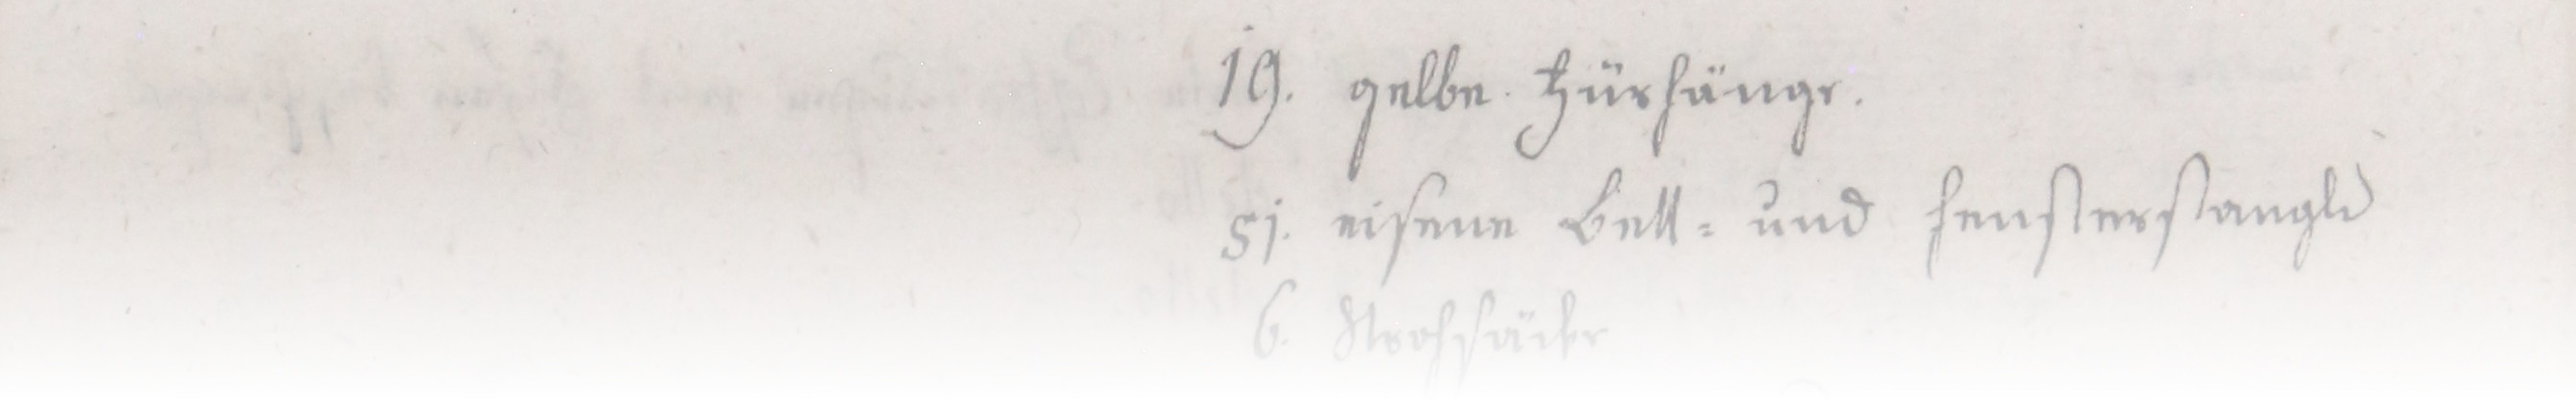 19. gelbe fürhänge.
51. eisene Bett= und fensterstangle
6. Strohsäcke